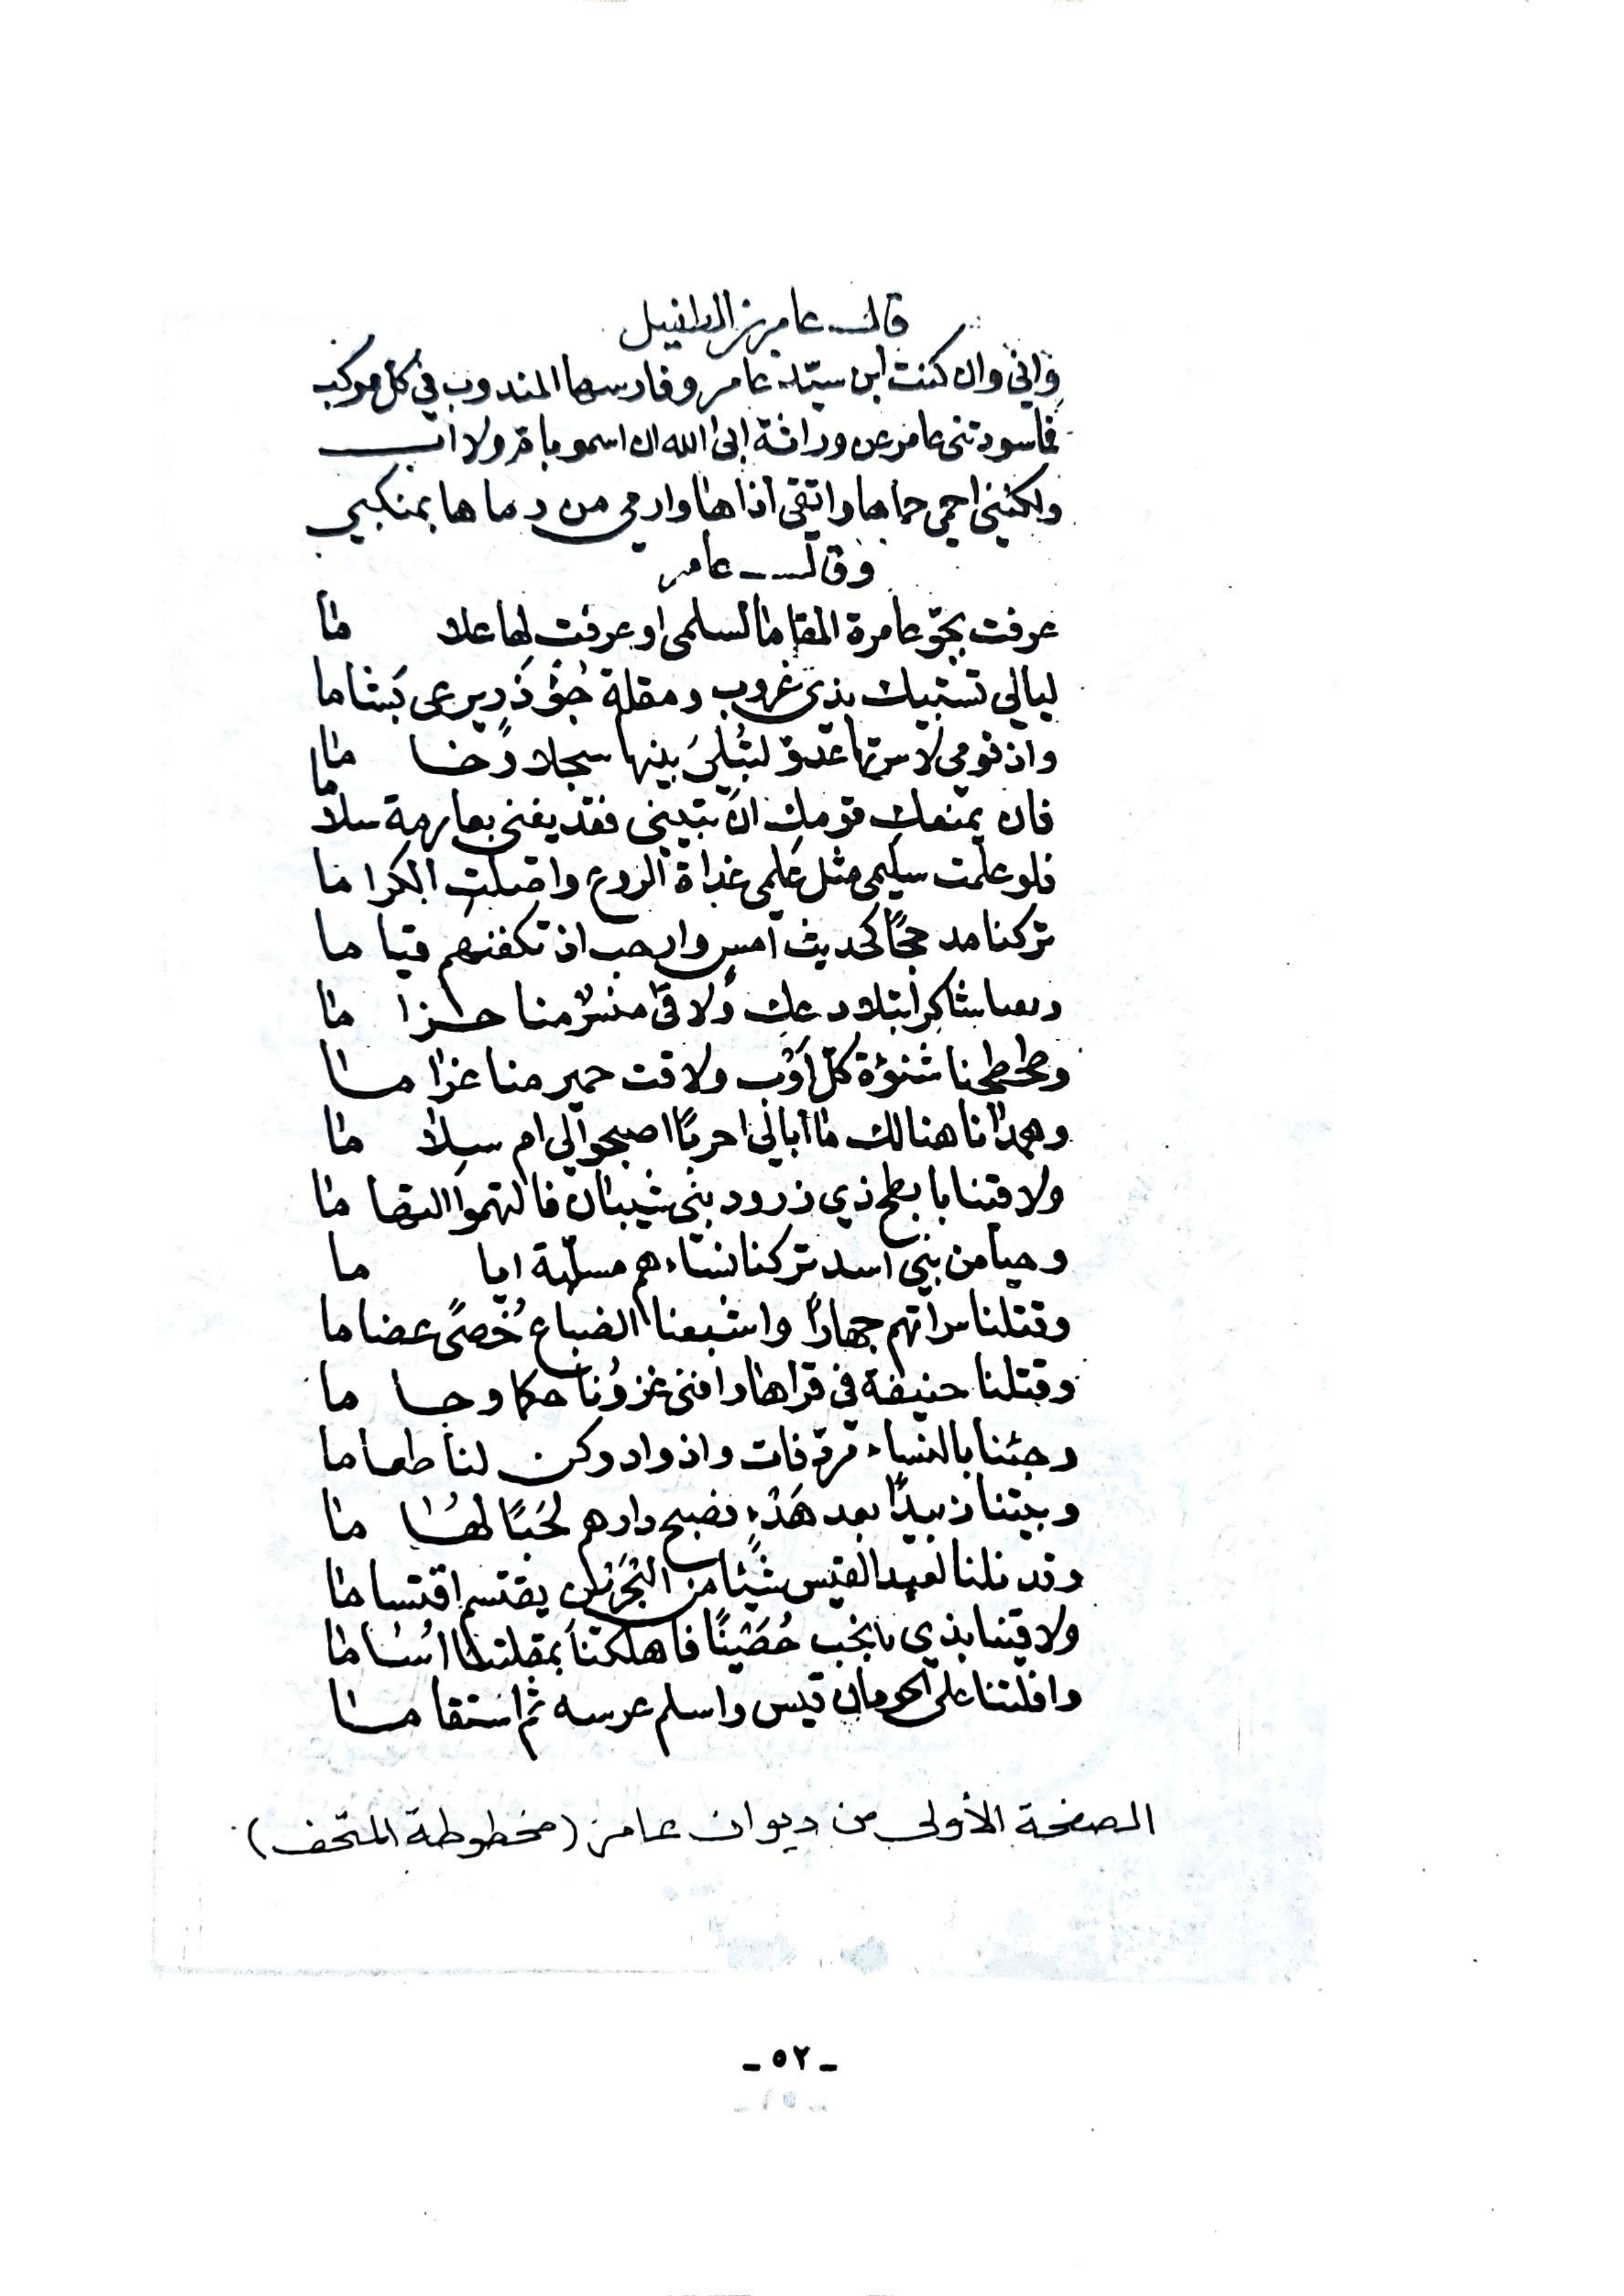 قال عامر بن الطفيل
واني وان كنت ابن سيد عامر وفارسها المندوب في كل موكب
فما سودتني عامر عن وراثة ابى الله ان اسمو بام ولا اب
ولكنني احمي حماها واتقي اذاها وارمي من رماها بمنكبي
وقال عامر
عرفت بجو عامرة المقاما لسلمى او عرفت لها علاما
ليالي تستبيك بذي غروب ومقلة جُؤذَر يرعى بَشاما
واذ قومي لاسرتها عدو لتُبلي بينها سجلا وخاما
فان يمنعك قومك ان تبيني فقد يغنى بعارمة سلاما
فلو علمت سليمى مثل علمي غداة الروع واصلت الكراما
تركنا مدحجًا كحديث امس وارحب اذ تكفنهم قياما
وبعنا شاكرا بتلاد عك ولاقى منسر منا حزاما
وطحطحنا شنؤة كل اوب ولاقت حمير منا غراما
وهمدانا هنالك ما ابالي احربًا اصبحوا لي ام سلاما
ولاقينا بابطح ذي زرود بني شيبان فالتهموا التهاما
وحيا من بني اسد تركنا نساءهم مسلبة اياما
وقتلنا سراتهم جهارًا واشبعنا الضباع خُصىً عضاما
وقتلنا حنيفة في قراها وافنى غزونا حكما وجاما
وجئنا بالنساء مردفات واذواد وكن لنا طعاما
وبيتنا زبيدًا بعد هَدْءٍ فصبح دارهم لَجَبًا لُهاما
وقد نلنا لعبد القيس شيئًا من البحرين يقتسم اقتساما
ولاقينا بذي نخب حُصَينًا فاهلكنا بمقلتنا اُساما
وافلتنا على الحومان قيس واسلم عرسه ثم استقاما
الصفحة الأولى من ديوان عامر (مخطوطة المتحف)
- ٥٢ -